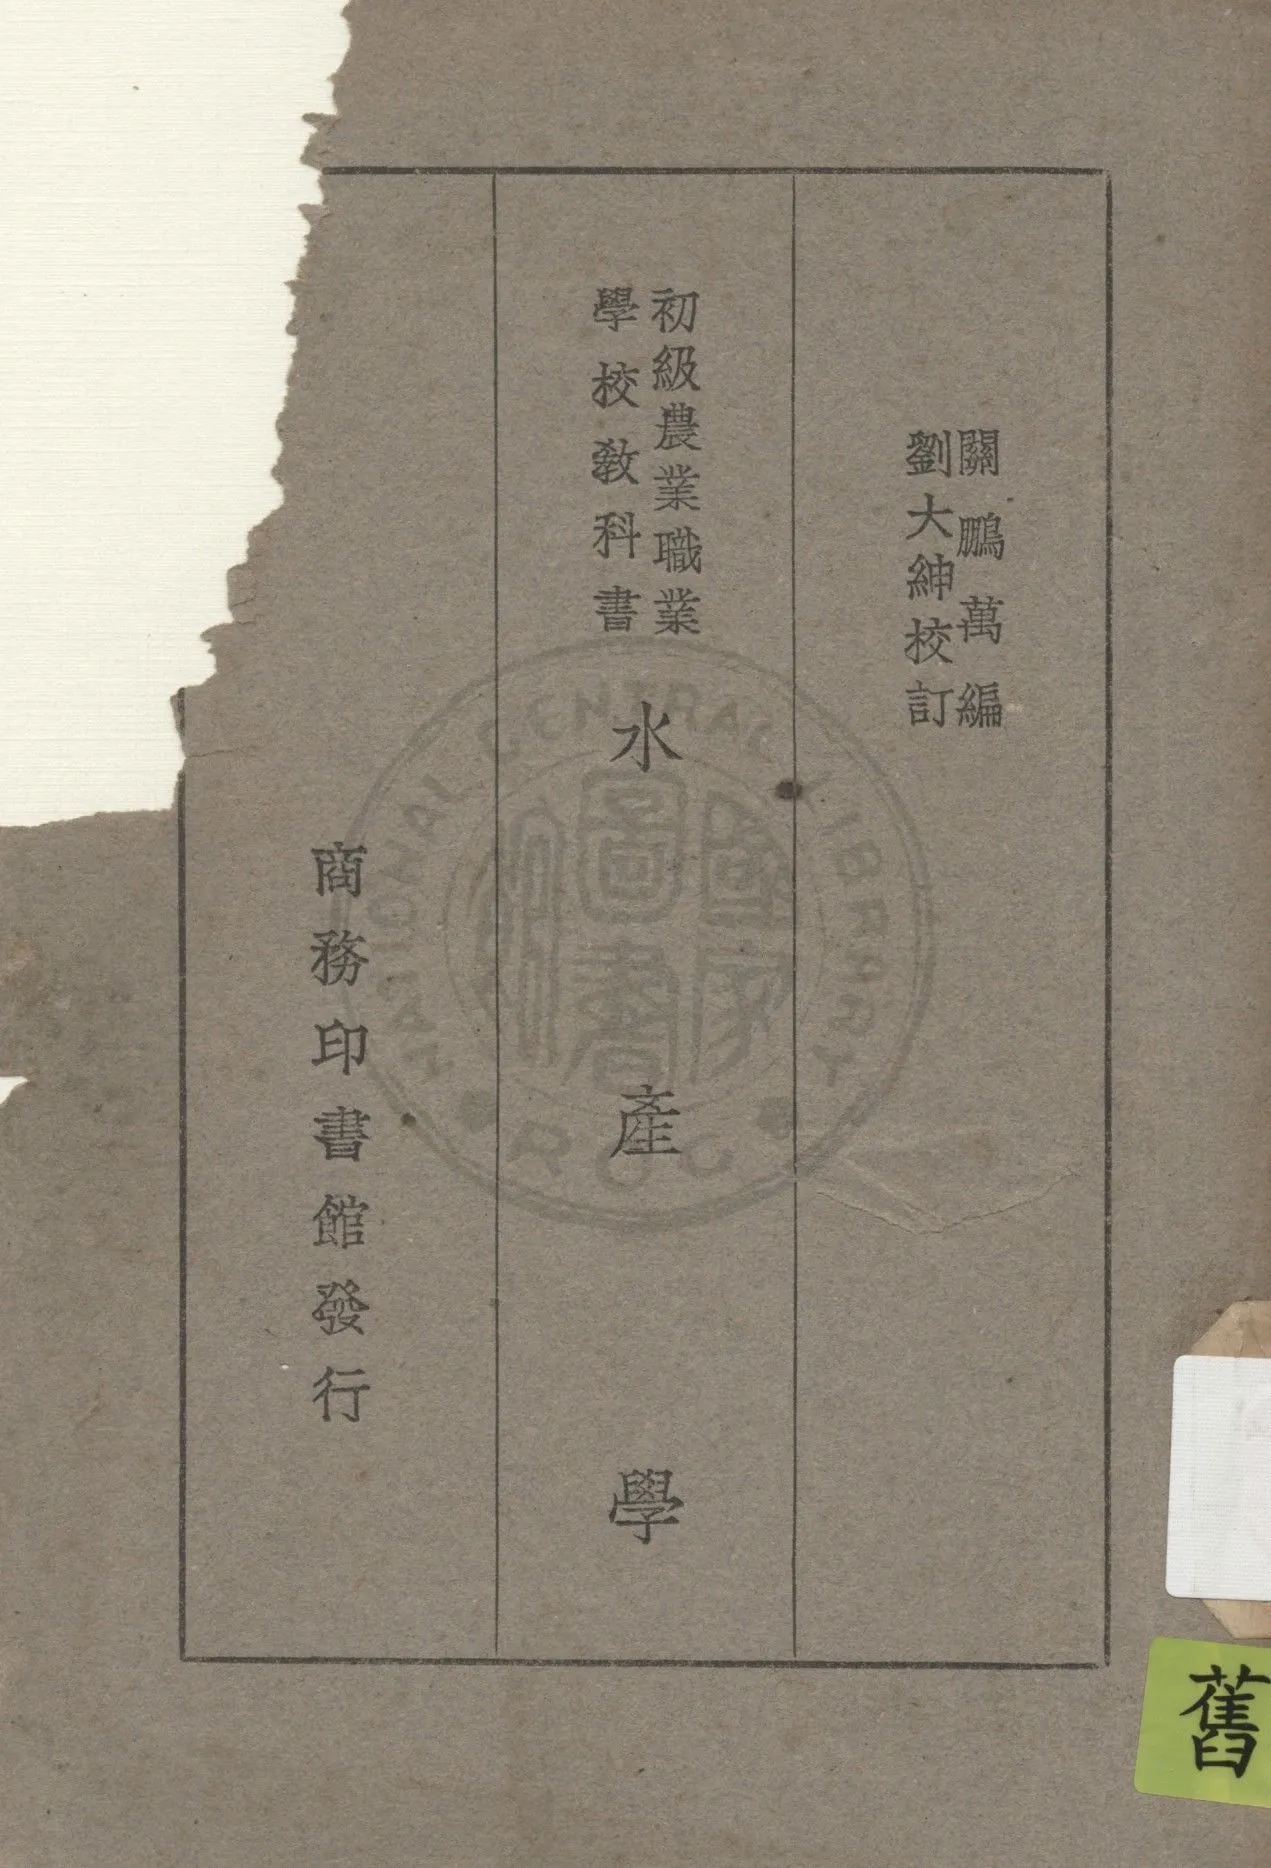 關鵬萬編
劉大紳校訂
初級農業職業
學校教科書
水產學
商務印書館發行
NATIONAL CENTRAL LIBRARY
R.O.C
國家圖書館
舊